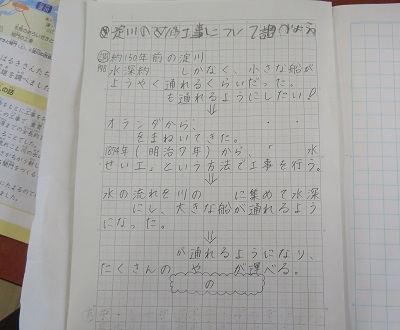 淀川の改修工事について調べよう
約150年前の淀川
水深約　　しかなく、小さな船が
ようやく通れるくらいだった。
も通れるようにしたい!
オランダから、　・　・
をまねいてきた。
1874年(明治7年)から、「　水
せい工」という方法で工事を行う。
水の流れを川の　　に集めて水深
にし、大きな船が通れるよう
になった。
が通れるようになり、
たくさんの　や　が運べる。
の